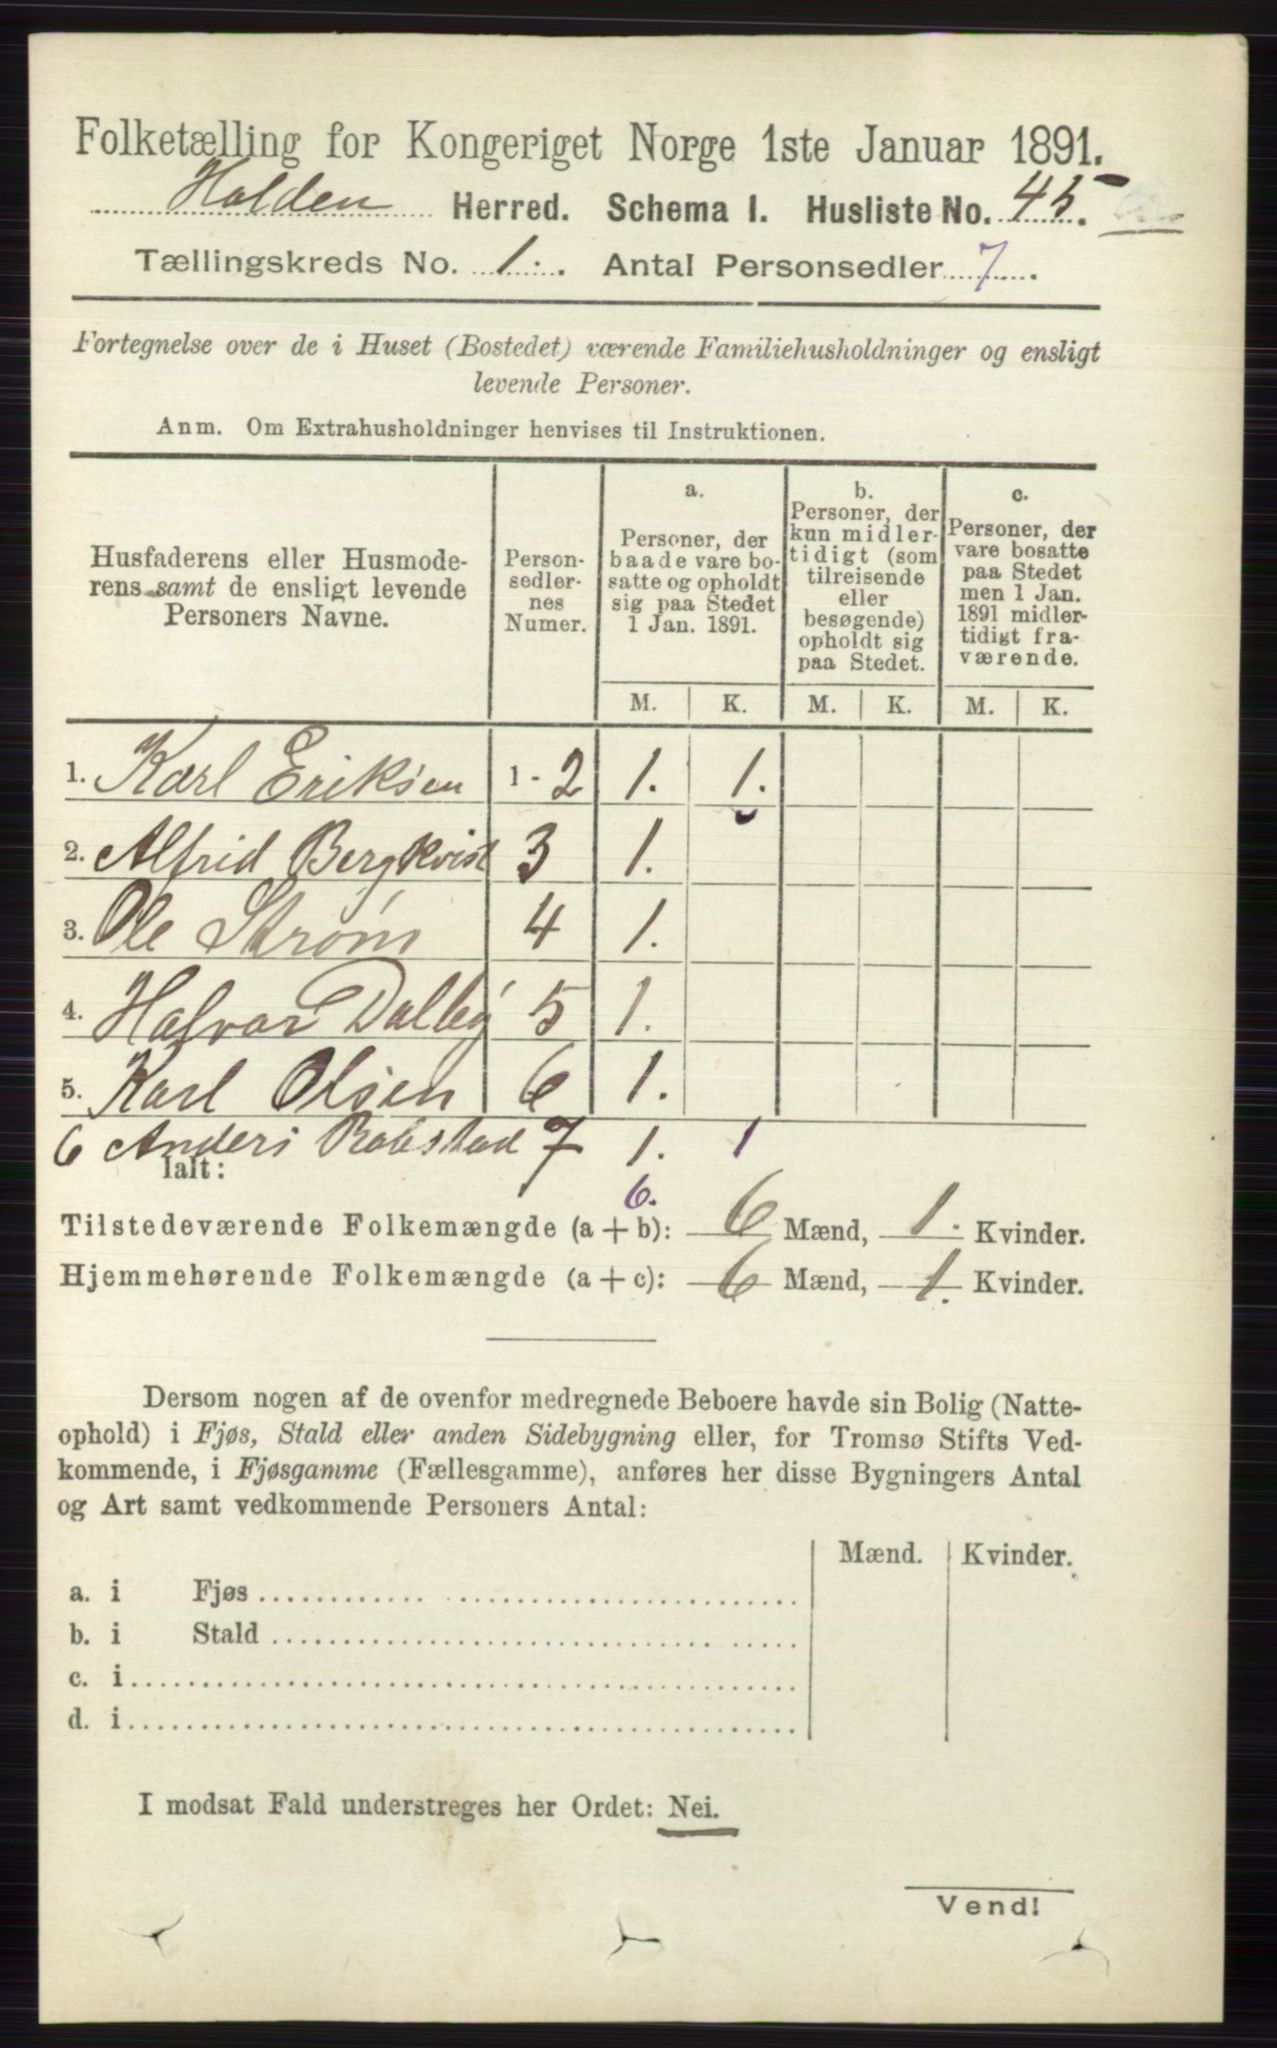 Folketælling for Kongeriget Norge 1ste Januar 1891.
Holden Herred. Schema I. Husliste No. 45.
Tællingskreds No. 1. Antal Personsedler 7.
Fortegnelse over de i Huset (Bostedet) værende Familiehusholdninger og ensligt
levende Personer.
Anm. Om Extrahusholdninger henvises til Instruktionen.
Husfaderens eller Husmode-
rens samt de ensligt levende
Personers Navne.
Person-
sedler-
nes
Numer.
a.
Personer, der
baade vare bo-
satte og opholdt
sig paa Stedet
1 Jan. 1891.
b.
Personer, der
kun midler-
tidigt (som
tilreisende
eller
besøgende)
opholdt sig
paa Stedet.
c.
Personer, der
vare bosatte
paa Stedet
men 1 Jan.
1891 midler-
tidigt fra-
værende.
M. K. M. K. M. K.
1. Karl Eriksen 1-2 1. 1.
2. Alfrid Bergkvist 3 1.
3. Ole Strøm 4 1.
4. Halvar Dalby 5 1.
5. Karl Olsen 6 1.
6 Anders 7 1. 1
Ialt:
6.
Tilstedeværende Folkemængde (a + b): 6 Mænd, 1. Kvinder.
Hjemmehørende Folkemængde (a + c): 6 Mænd, 1. Kvinder.
Dersom nogen af de ovenfor medregnede Beboere havde sin Bolig (Natte-
ophold) i Fjøs, Stald eller anden Sidebygning eller, for Tromsø Stifts Ved-
kommende, i Fjøsgamme (Fællesgamme), anføres her disse Bygningers Antal
og Art samt vedkommende Personers Antal:
Mænd. Kvinder.
a. i Fjøs
b. i Stald
c. i
d. i
I modsat Fald understreges her Ordet: Nei.
Vend!